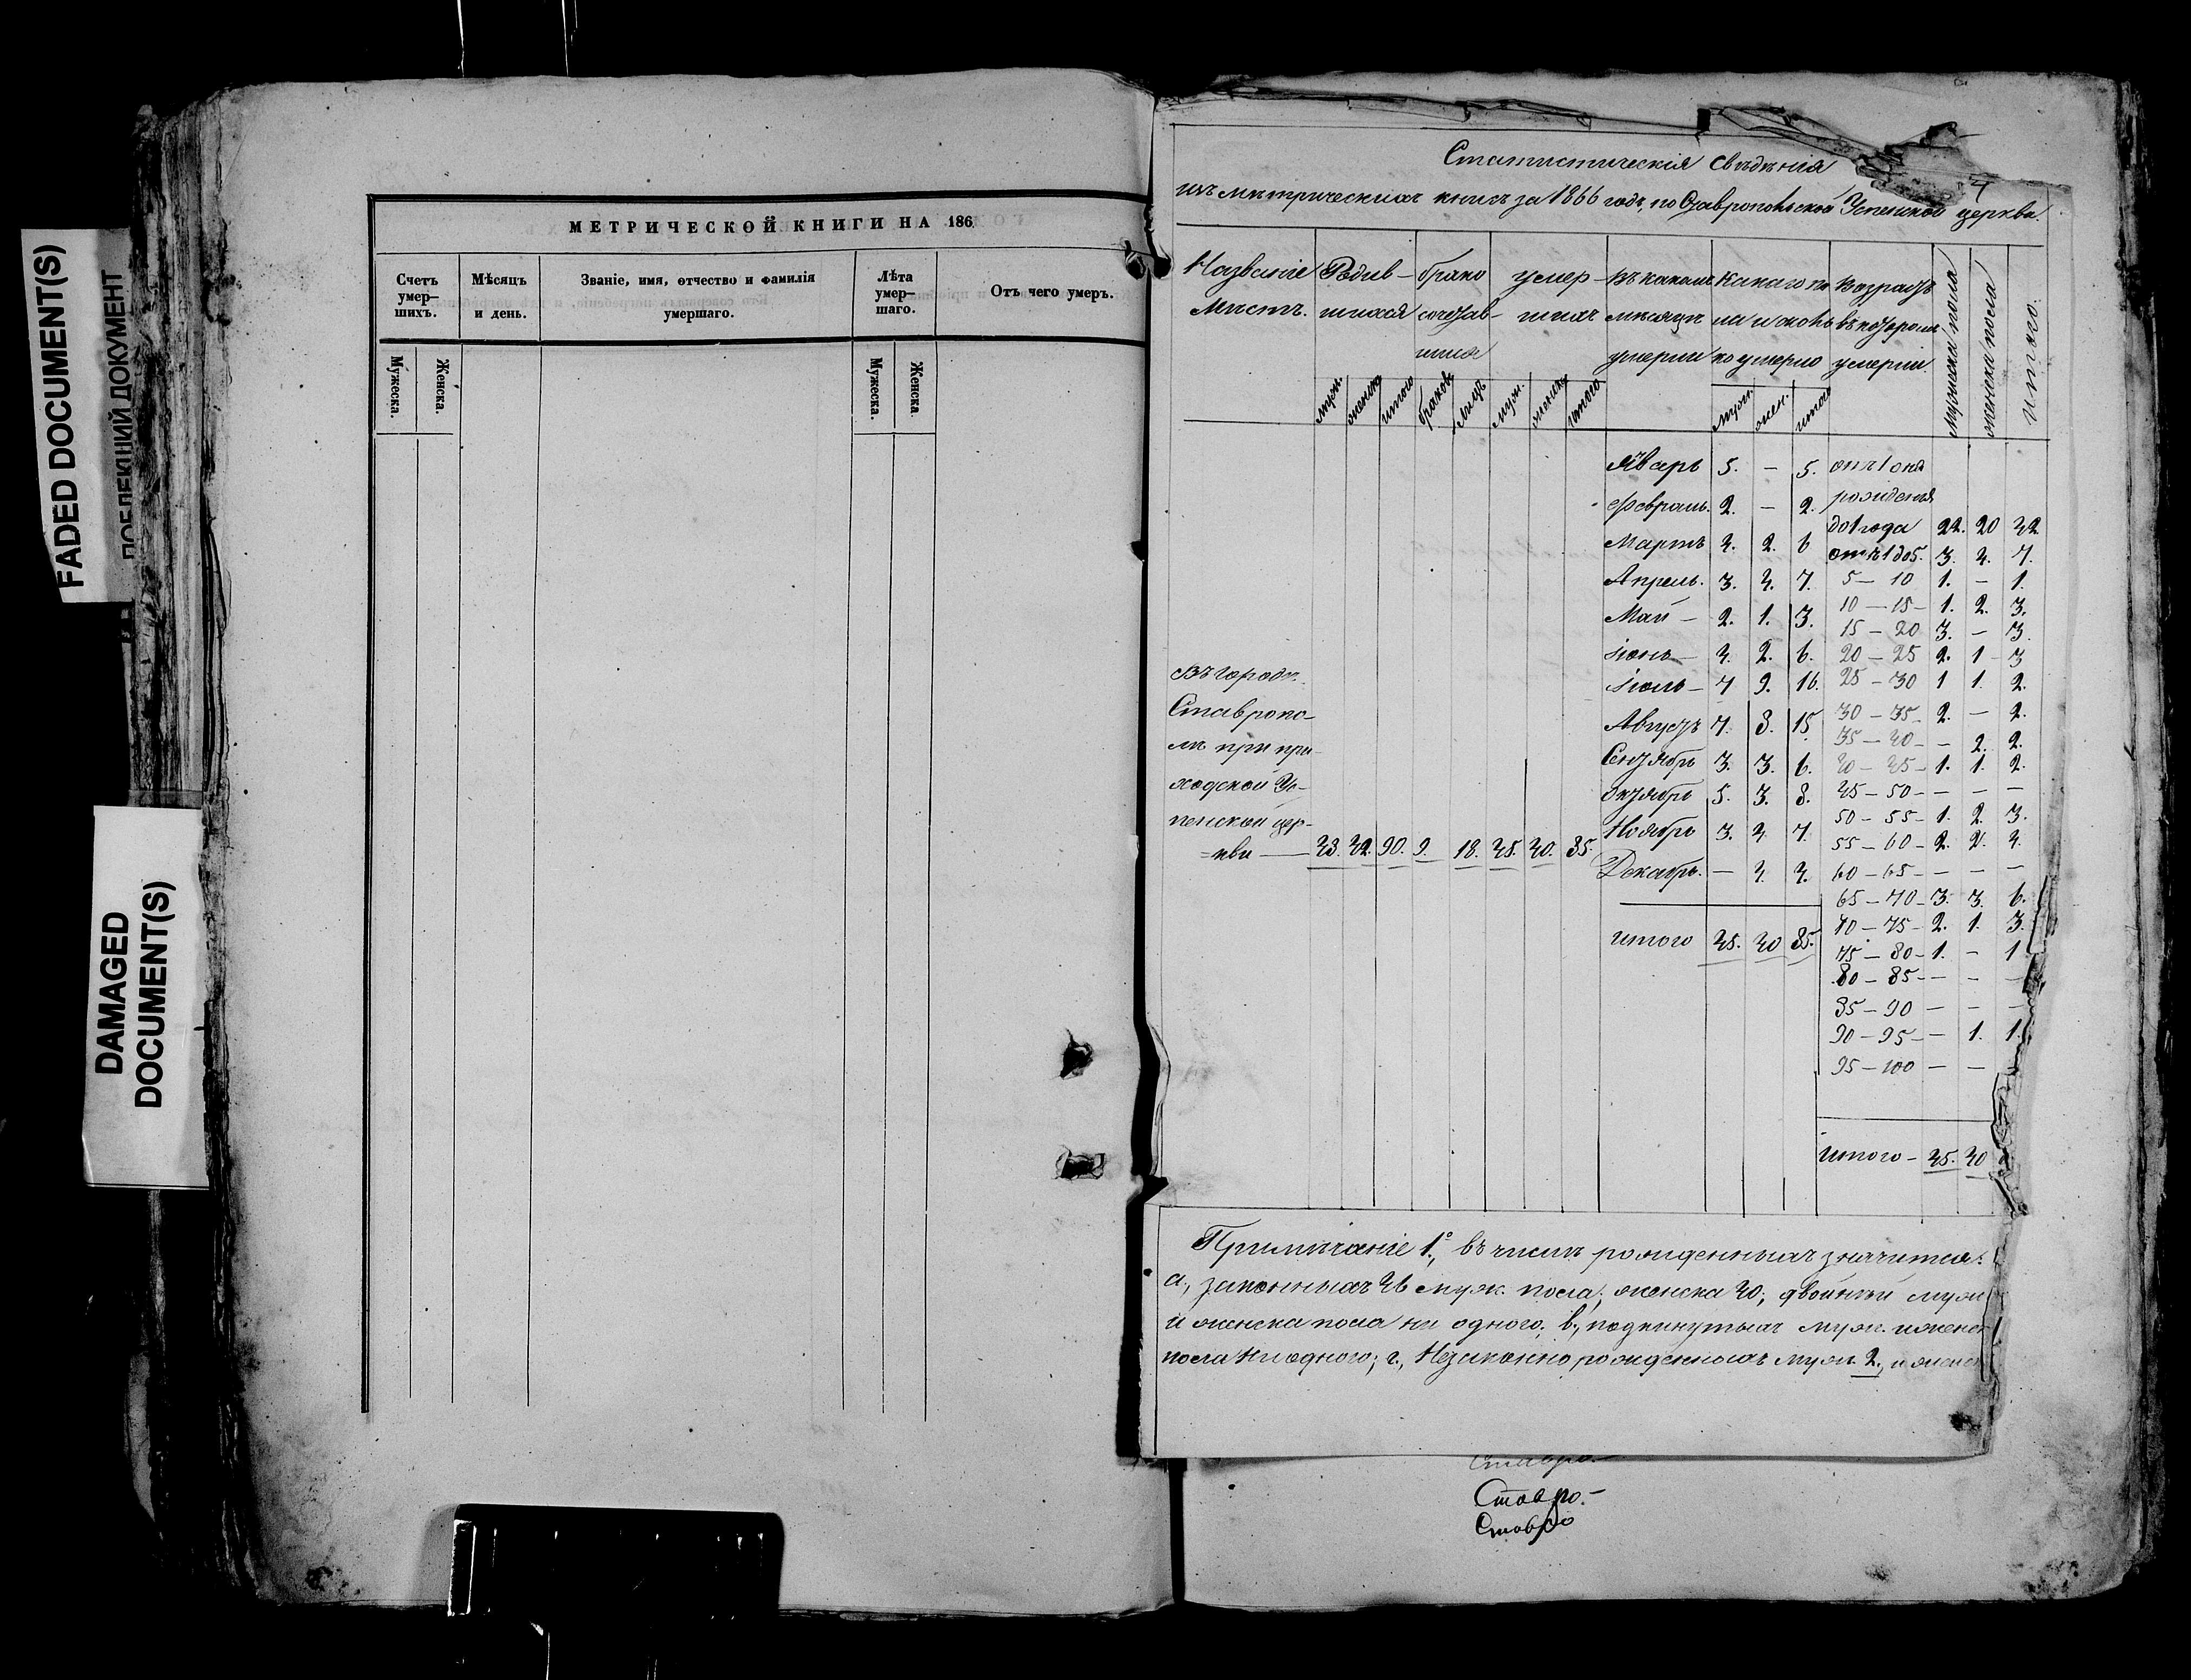 FADED DOCUMENT(S)
ДОКУМЕНТ
DAMAGED
DOCUMENT(S)
МЕТРИЧЕСКОЙ КНИГИ НА 186
Счетъ умер-шихъ.
Мѣсяцъ и день.
Званіе, имя, отчество и фамилія умершаго.
Лѣта умер-шаго.
Отъ чего умеръ.
Мужеска. Женска. Мужеска. Женска
Статистическія свѣдѣнія
изъ метрическихъ книгъ за 1866 годъ, по Ставропольской Успенской церкви.
Названіе Мѣстъ.
Родив-шихся
брако сочетав-шихся
умер-шихъ
въ какомъ мѣсяцѣ умерли
какого по ла и сколь ко умерло
Возрастъ въ которомъ умерли.
Мужеска пола
женска пола
итого.
муж. женск. итого браковъ лицъ муж. женск. итого муж. жен. итого
Январь 5. – 5.
Февраль. 2. – 2.
Мартъ 4. 2. 6
Апрель. 3. 4. 7.
Май – 2. 1. 3.
Іюнь – 4. 2. 6.
Іюль – 7 9. 16.
Августъ 7. 8. 15
Сентябрь 3. 3. 6.
Октябрь 5. 3. 8.
Ноябрь 3. 4. 7.
Декабрь. – 4. 4.
итого 45. 40 85.
отъ 1 дня
рожденія
до 1 года 22. 20 42.
отъ 1 до 5. 3. 4. 7.
5 – 10 1. – 1.
10 – 15 – 1. 2. 3.
15 – 20 3. – 3.
20 – 25 2. 1 – 3
25 – 30 1 1. 2.
30 – 35 – 2. – 2.
35 – 40 – – 2. 2.
40 – 45 – 1. 1. 2.
45 – 50 – – – –
50 – 55 – 1. 2. 3.
55 – 60 – 2. 2. 4.
60 – 65 – – – –
65 – 70 – 3. 3. 6.
70 – 75 – 2. 1. 3.
75 – 80 – 1. – 1
80 – 85 – – – –
85 – 90 – – –
90 – 95 – – 1. 1.
95 – 100 – –
Итого – 45. 40
Въ городѣ
Ставропо-
лѣ при при-
ходской Ус-
пенской цер-
=кви — 48. 42. 90. 9. 18. 45. 40. 85.
Примѣчаніе 1е, въ числѣ рожденныхъ значится:
а., законныхъ 46 муж. пола; женска 40; двойней муж
и женска пола ни одного; в., подкинутыхъ муж. и женск
пола ни одного; г., Незаконно рожденныхъ муж. 2., и женск
Ставро.–
Ставро.–
Ставро